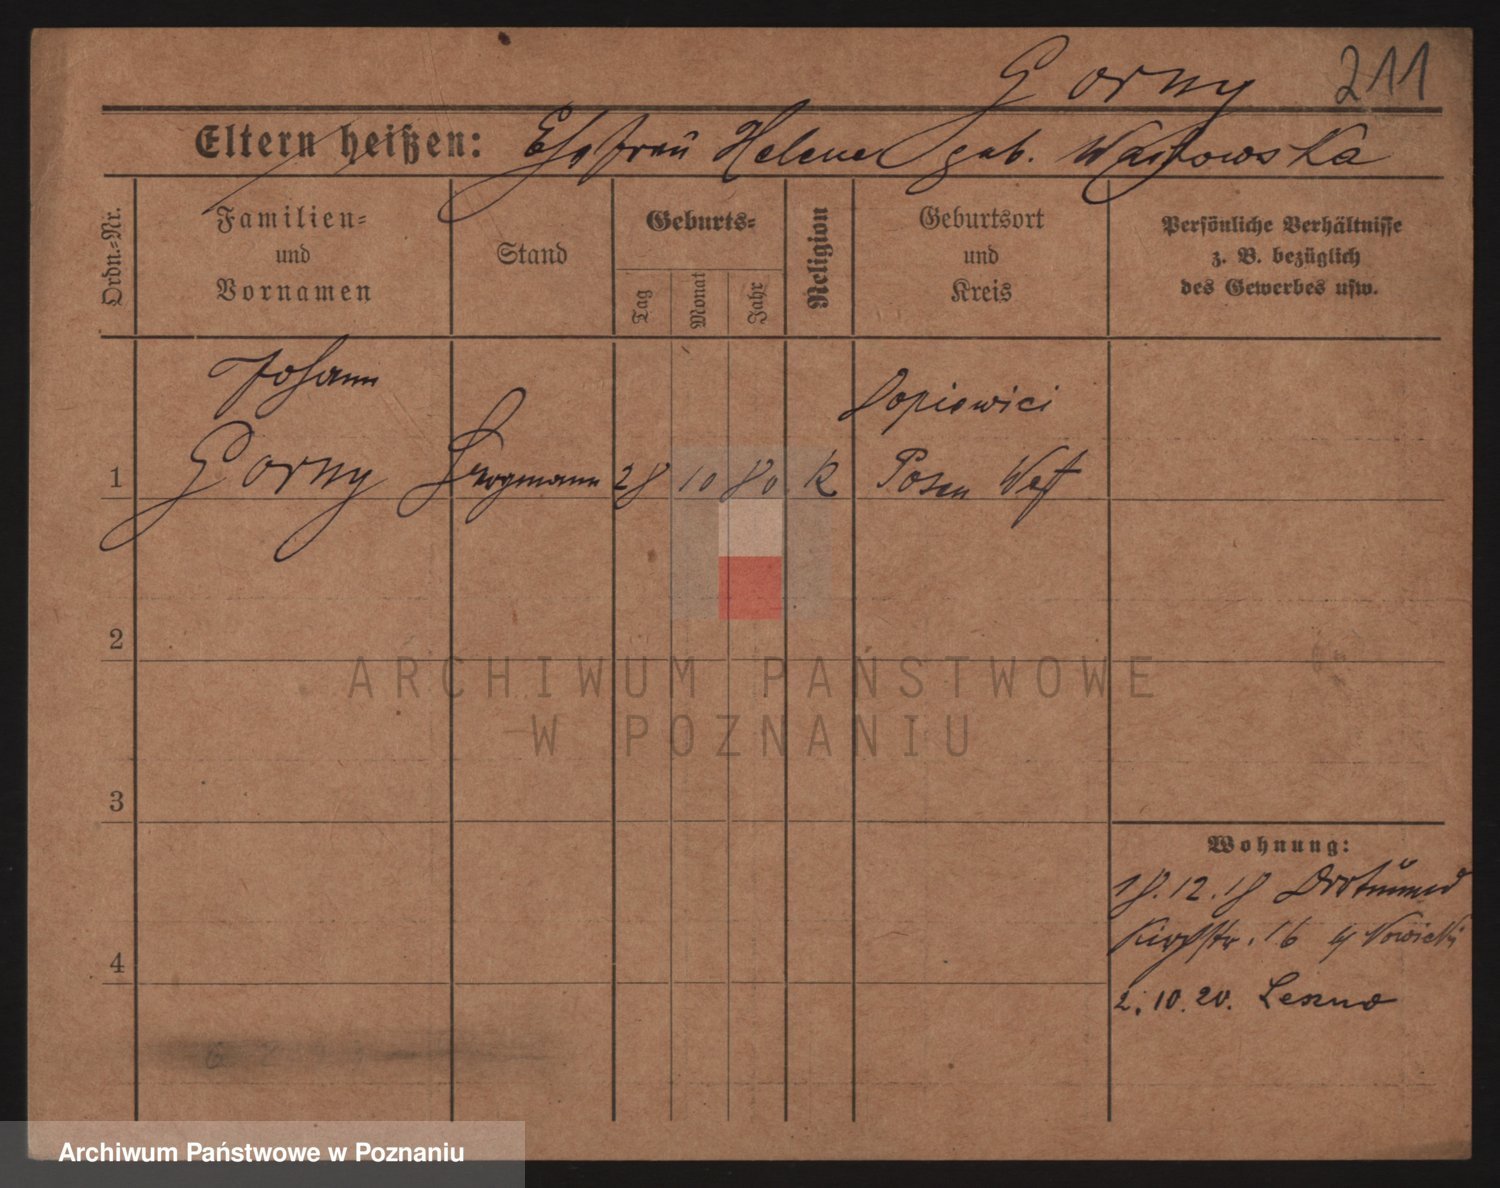 Gorny 211
Eltern heißen: Ehefrau Helene geb.
Ordn.=Nr.
Familien=
und
Vornamen
Stand
Geburts=
Tag
Monat
Jahr
Religion
Geburtsort
und
Kreis
Persönliche Verhältnisse
z. B. bezüglich
des Gewerbes usw.
Johann
1 Gorny Bergmann 28 10 80 K Dopiewici
Posen West
2
ARCHIWUM PAŃSTWOWE
W POZNANIU
3
Wohnung:
18.12.18 Dortmund
Kirchstr. 16 Nowicki
4
2.10.20. Leszno
Archiwum Państwowe w Poznaniu